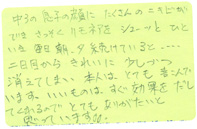 中3の息子の顔に たくさんのニキビが
でき さっそく リモネアを シューッと ひと
いき 毎日 朝、夕 続けていると....
二日目から きれいに 少しづつ
消えてしまい 本人は とても 喜んで
います。いいものは すぐ 効果を だし
てくれるので とても ありがたいと
思っています。